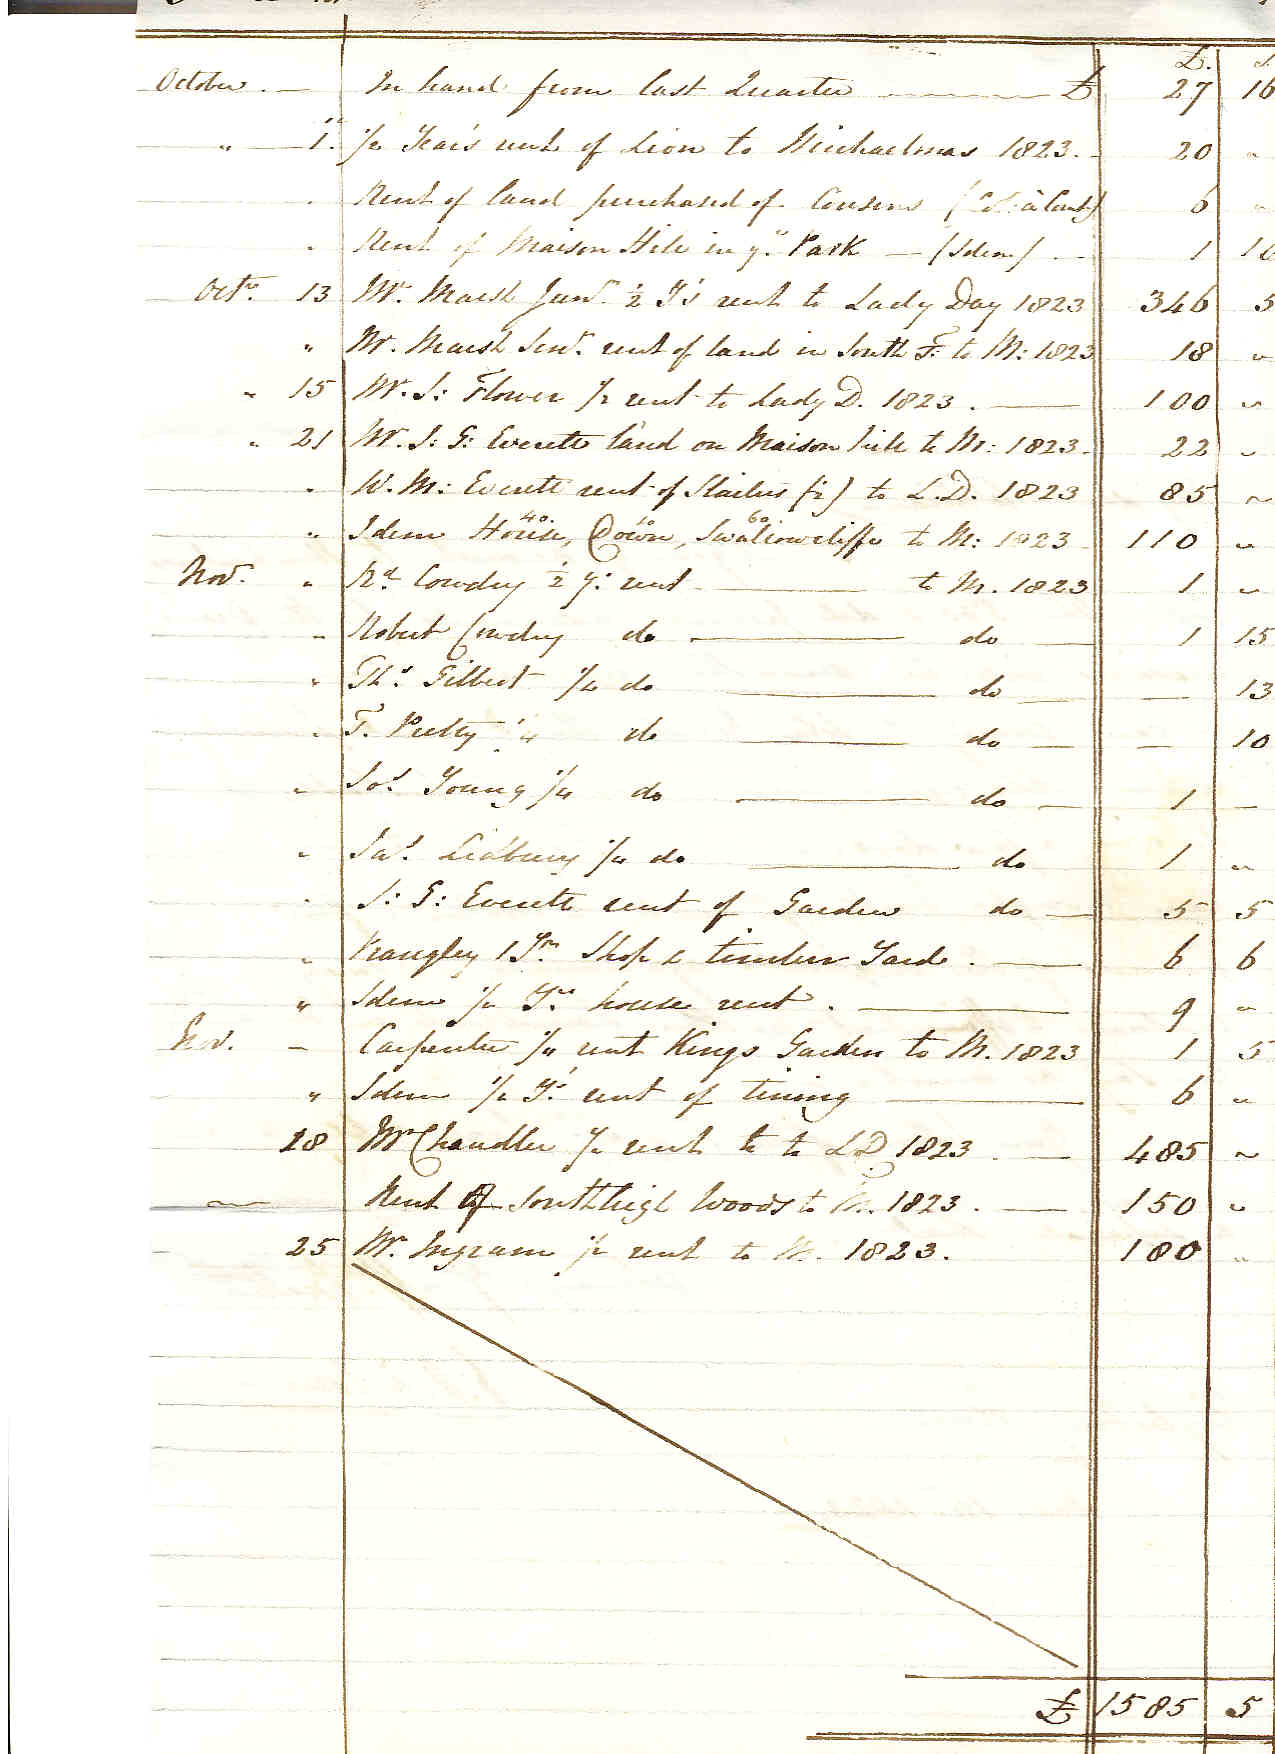 £. s.
October. — In hand from last Quarter — £ 27 16
" — 1. ½ Year's rent of Lion to Michaelmas 1823. - 20 "
" Rent of land purchased of Cousens ( 6 "
" Rent of Maison Hile in ye. Park — (Idem) — 1 10
Octr. 13 Mr. Marsh Junr. ½ Y's rent to Lady Day 1823 346 5
" Mr. Marsh Senr. rent of land in South F: to M: 1823 18 "
" 15 Mr. J: Flower ½ rent to Lady D. 1823. — 100 "
" 21 Mr. J: G: Everett land on Maison hile to M: 1823. 22 "
" W. M: Everett rent of (½) to L.D. 1823 85 "
40. 10 60
" Idem House, Down, Swallowcliffe to M: 1823 110 "
Novr. " Rd. Cowdry ½ y: rent — to M. 1823 1 "
" Robert Cowdry do — do — 1 15
" Ths. Gilbert ½ do — do — — 13
" T. Pretty ½ do — do — — 10
" Jos. Young ½ do — do — 1 —
" Jas. Lidbury ½ do — do 1 "
" J: G: Everett rent of Garden do — 5 5
" Krangley 1 Yr. Shop & timber Yard. — 6 6
" Idem ½ Yrs. house rent. — 9 "
Nov. — Carpenter ½ rent Kings Garden to M. 1823 1 5
" Idem ½ Y: rent of tining — 6 "
28 Mr Chandler ½ rent to to L D 1823 — 485 "
" Rent of Southleigh Woods to M. 1823. — 150 "
25 Mr. Ingram ½ rent to M. 1823. 180 "
£ 1585 5